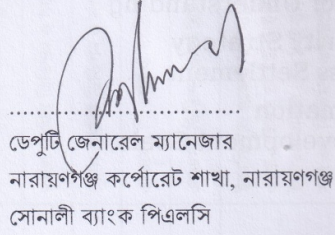 ডেপুটি জেনারেল ম্যানেজার
নারায়ণগঞ্জ কর্পোরেট শাখা, নারায়ণগঞ্জ
সোনালী ব্যাংক পিএলসি